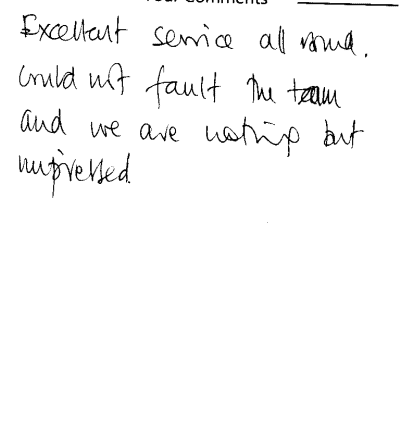 Your Comments
Excellent service all round.
Could not fault the team
and we are nothing but
impressed